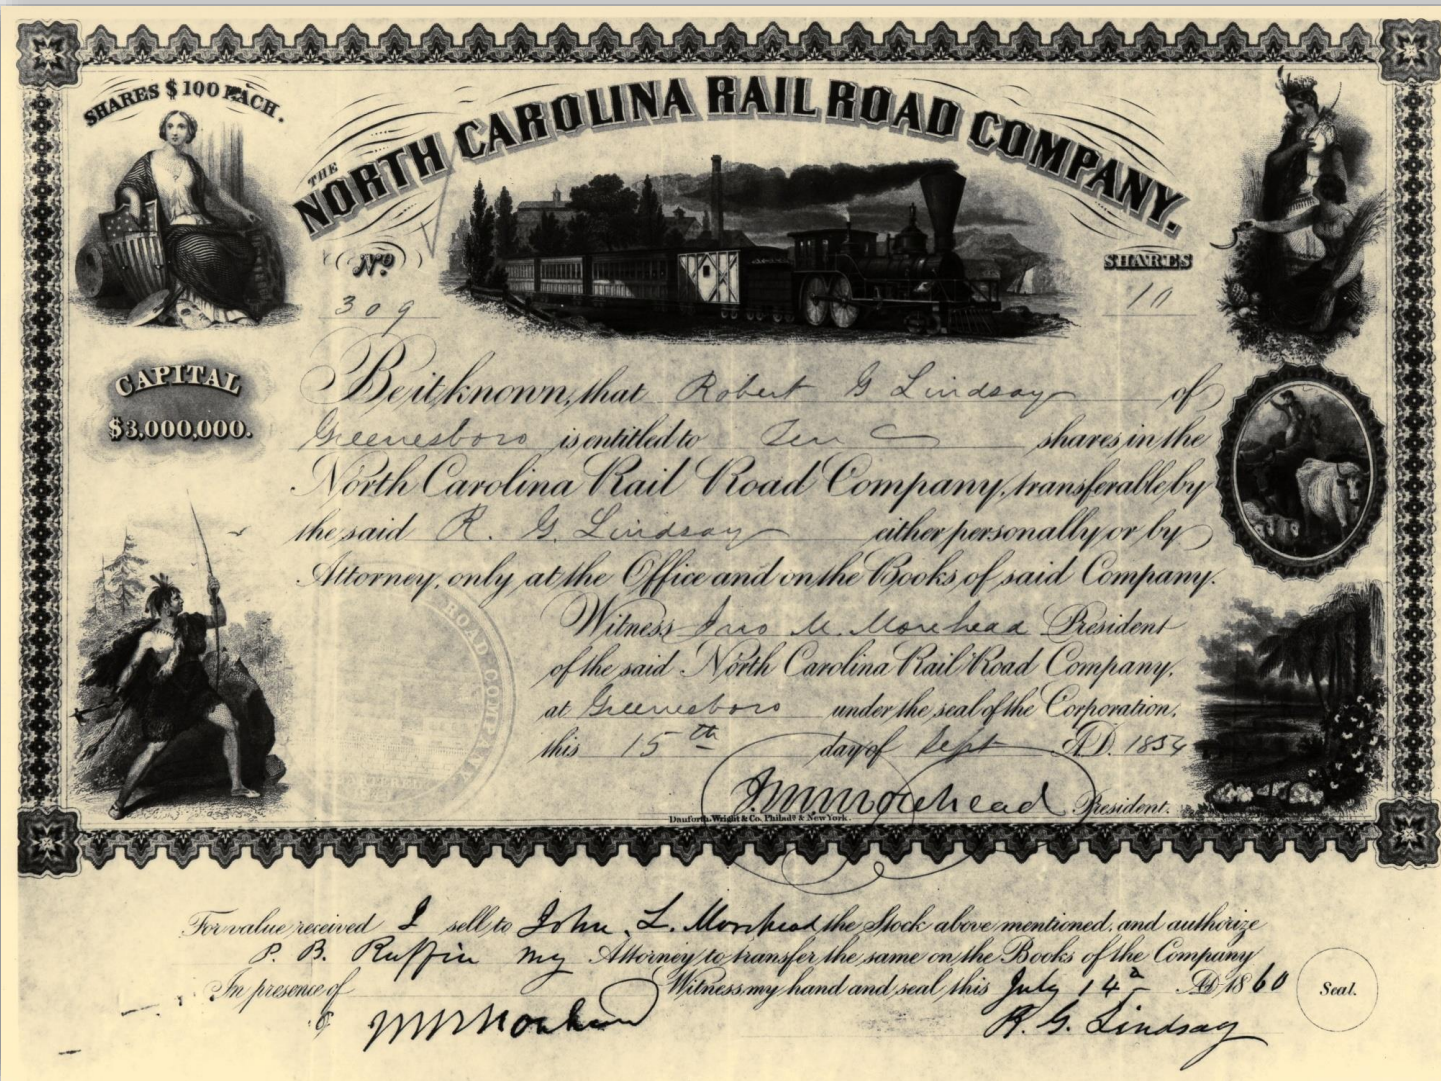 SHARES $100 EACH.
THE
NORTH CAROLINA RAIL ROAD COMPANY.
No
SHARES
309
10
CAPITAL
$3,000,000.
Be it known, that Robert G Lindsay of
Greenesboro is entitled to Ten shares in the
North Carolina Rail Road Company, transferable by
the said R. G. Lindsay either personally or by
Attorney, only at the Office and on the Books of said Company.
Witness Jno M. Morehead President
of the said North Carolina Rail Road Company,
at Greenesboro under the seal of the Corporation,
this 15th day of Sept A.D. 1854
J M Morehead President.
Danforth, Wright & Co. Philada & New York.
ROAD COMPANY
For value received I sell to John L. Morehead the Stock above mentioned, and authorize
P. B. Ruffin my Attorney to transfer the same on the Books of the Company
In presence of Witness my hand and seal this July 14 A.D. 1860
Seal.
R. G. Lindsay